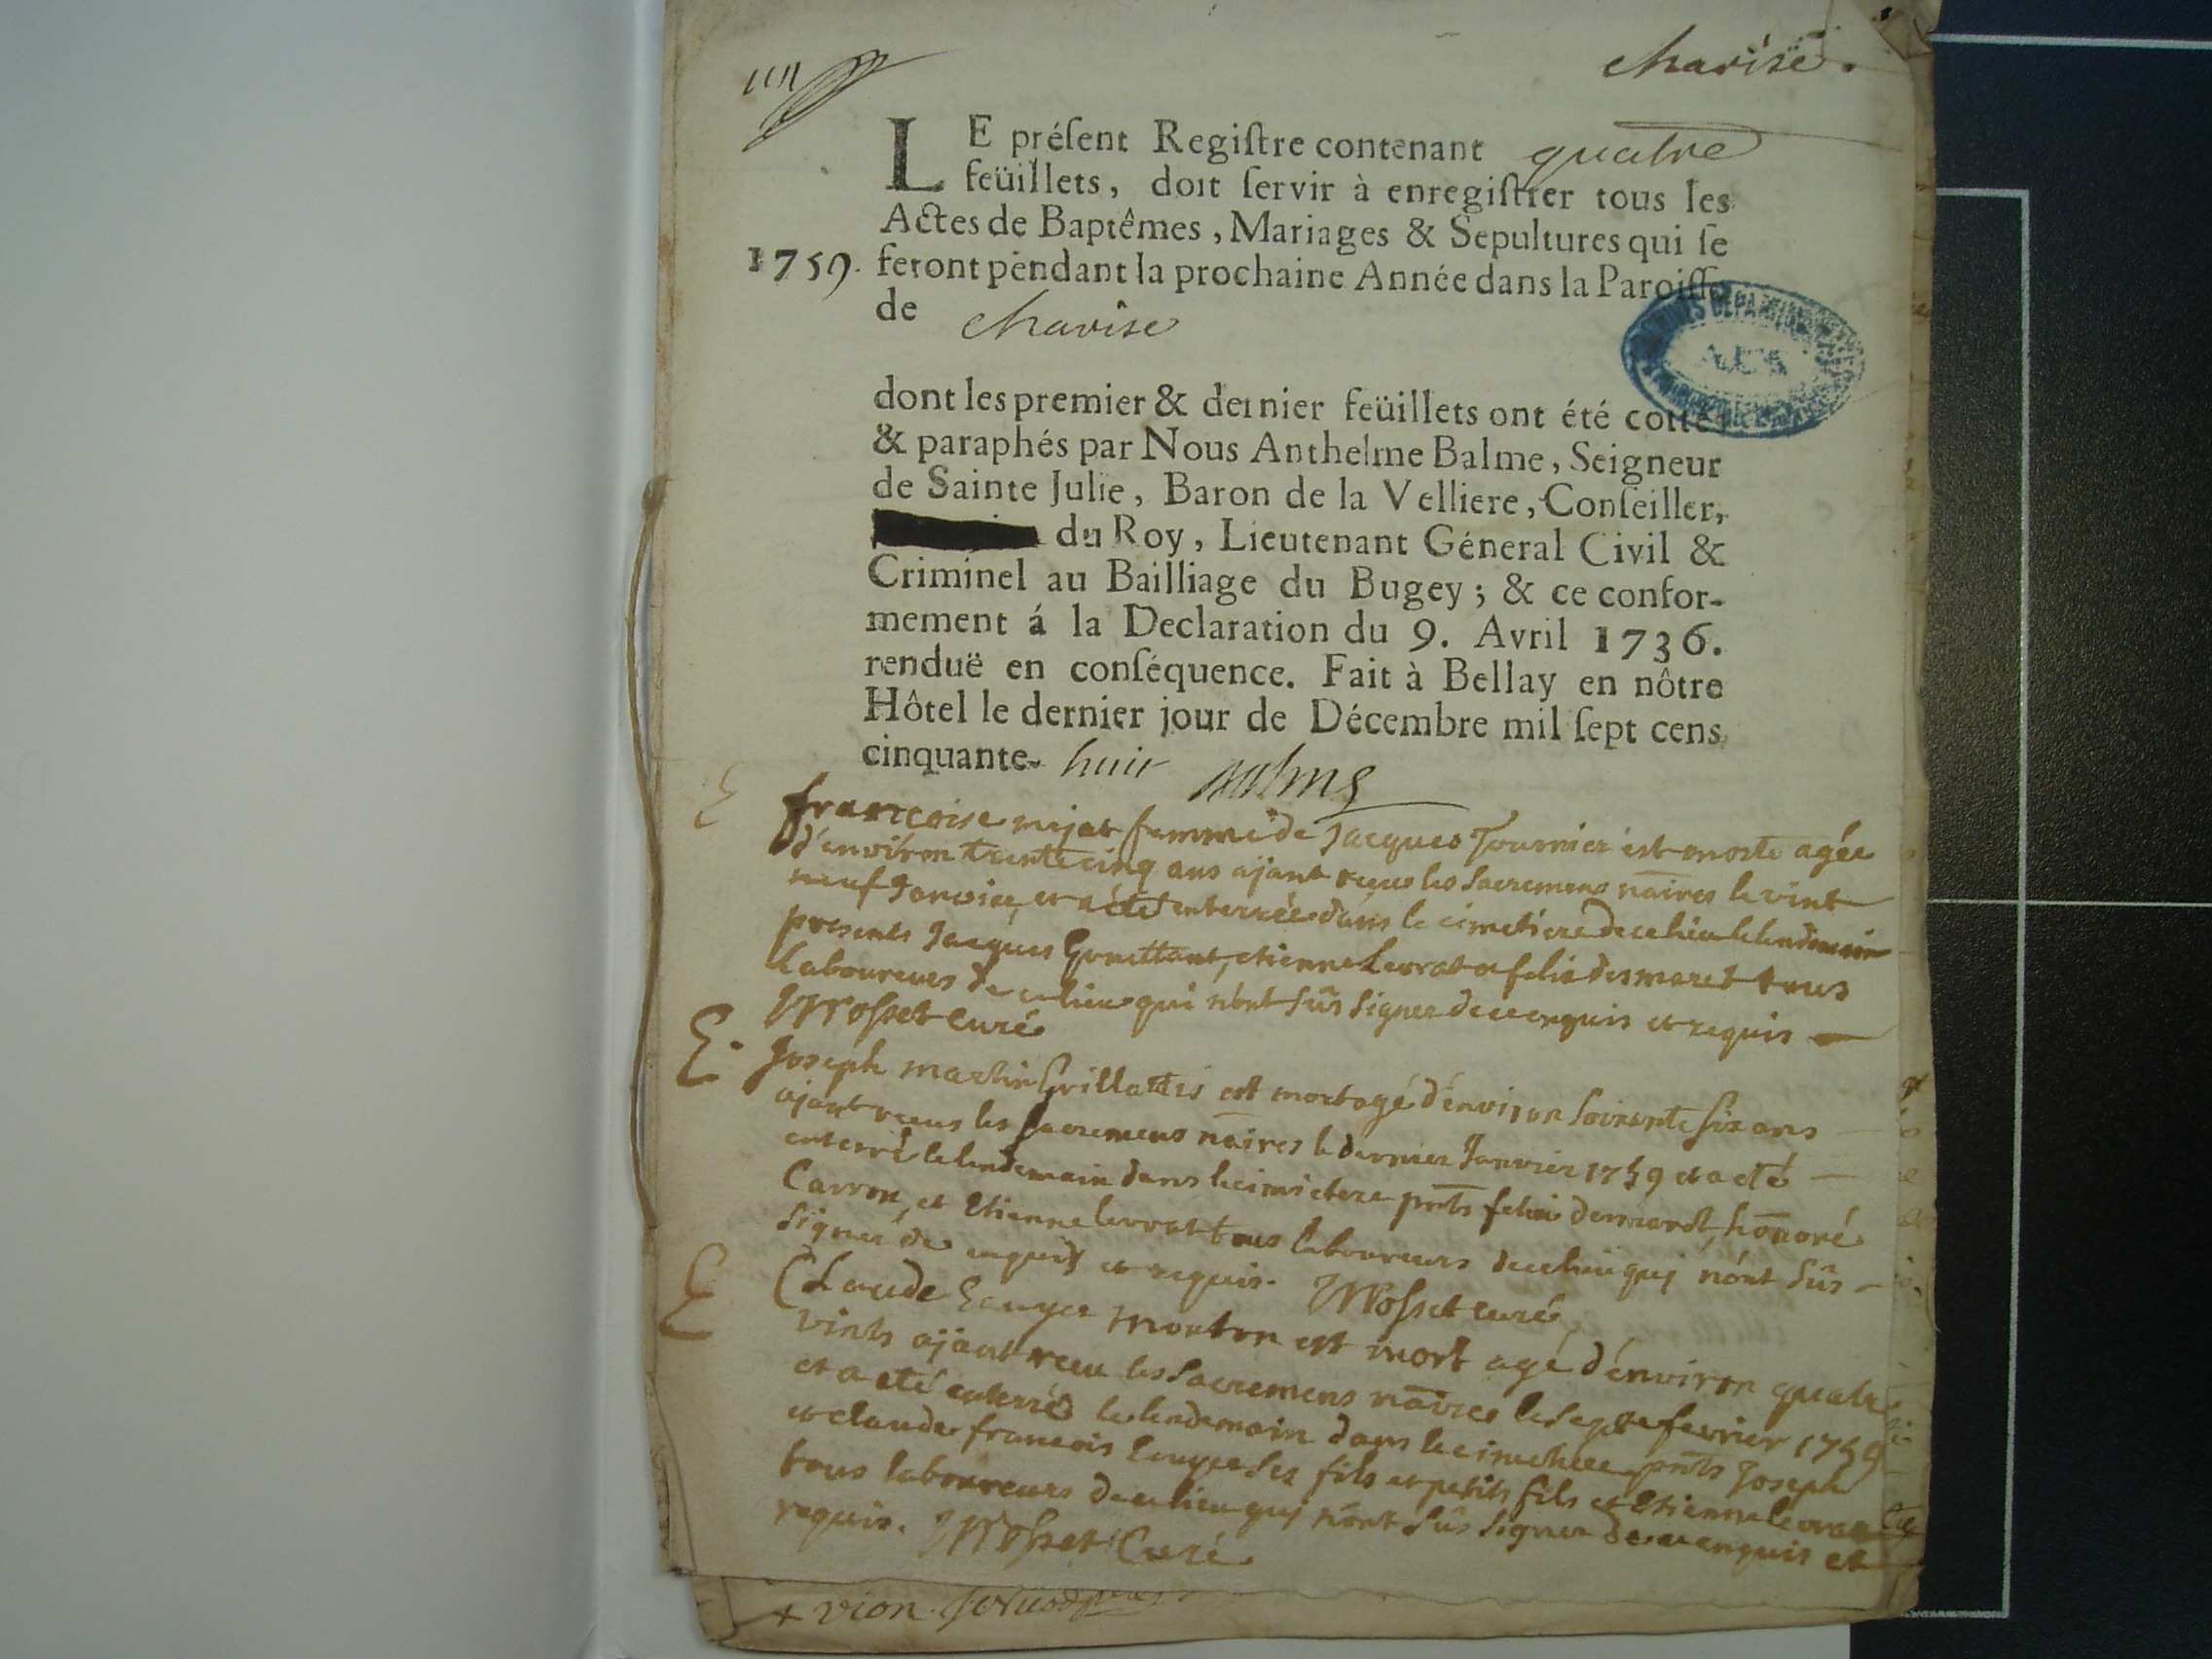 chavise.
LE préſent Regiſtre contenant quatre
feüillets, doit ſervir à enregiſtrer tous les
Actes de Baptêmes, Mariages & Sepultures qui ſe
1759. feront pendant la prochaine Année dans la Paroiſſe
de chavise
dont les premier & dernier feüillets ont été cottés
& paraphés par Nous Anthelme Balme, Seigneur
de Sainte Julie, Baron de la Velliere, Conſeiller,
du Roy, Lieutenant Géneral Civil &
Criminel au Bailliage du Bugey; & ce confor-
mement á la Declaration du 9. Avril 1736.
renduë en conſéquence. Fait à Bellay en nôtre
Hôtel le dernier jour de Décembre mil ſept cens
cinquante- huit Balme
E françoise mejat femme de Jacques Tournier est morte agée
d'environ trente cinq ans ajant receu les Sacremens naires le vint
neuf Janvier, et a été enterrée dans le cimetiere de ce lieu le lendemain
presents Jacques Gonettant, etienne Levrat et felix desmaret tous
Laboureurs de ce lieu qui n'ont sus signer de ce enquis et requis
Mosset curé
E. Joseph martin Grillattis est mort agé d'environ soixante six ans
ajant receus les sacremens naires le dernier Janvier 1759 et a eté
enterré le lendemain dans le cimictere pnts felix demaret, honoré
Carron, et Etienne levrat tous laboureurs de ce lieu qui n'ont sus
signer de enquis et requis. Mosset curé
E Claude mouton est mort agé d'environ quatre
vints ajant receu les Sacremens naires le sept fevrier 1759
et a eté enterré le lendemain dans le cimetiere pnts Joseph
et claude francois ses fils et petits fils et Etienne levrat
tous laboureurs de ce lieu qui n'ont sus signer de ce enquis et
requis. Mosset Curé
+ vion